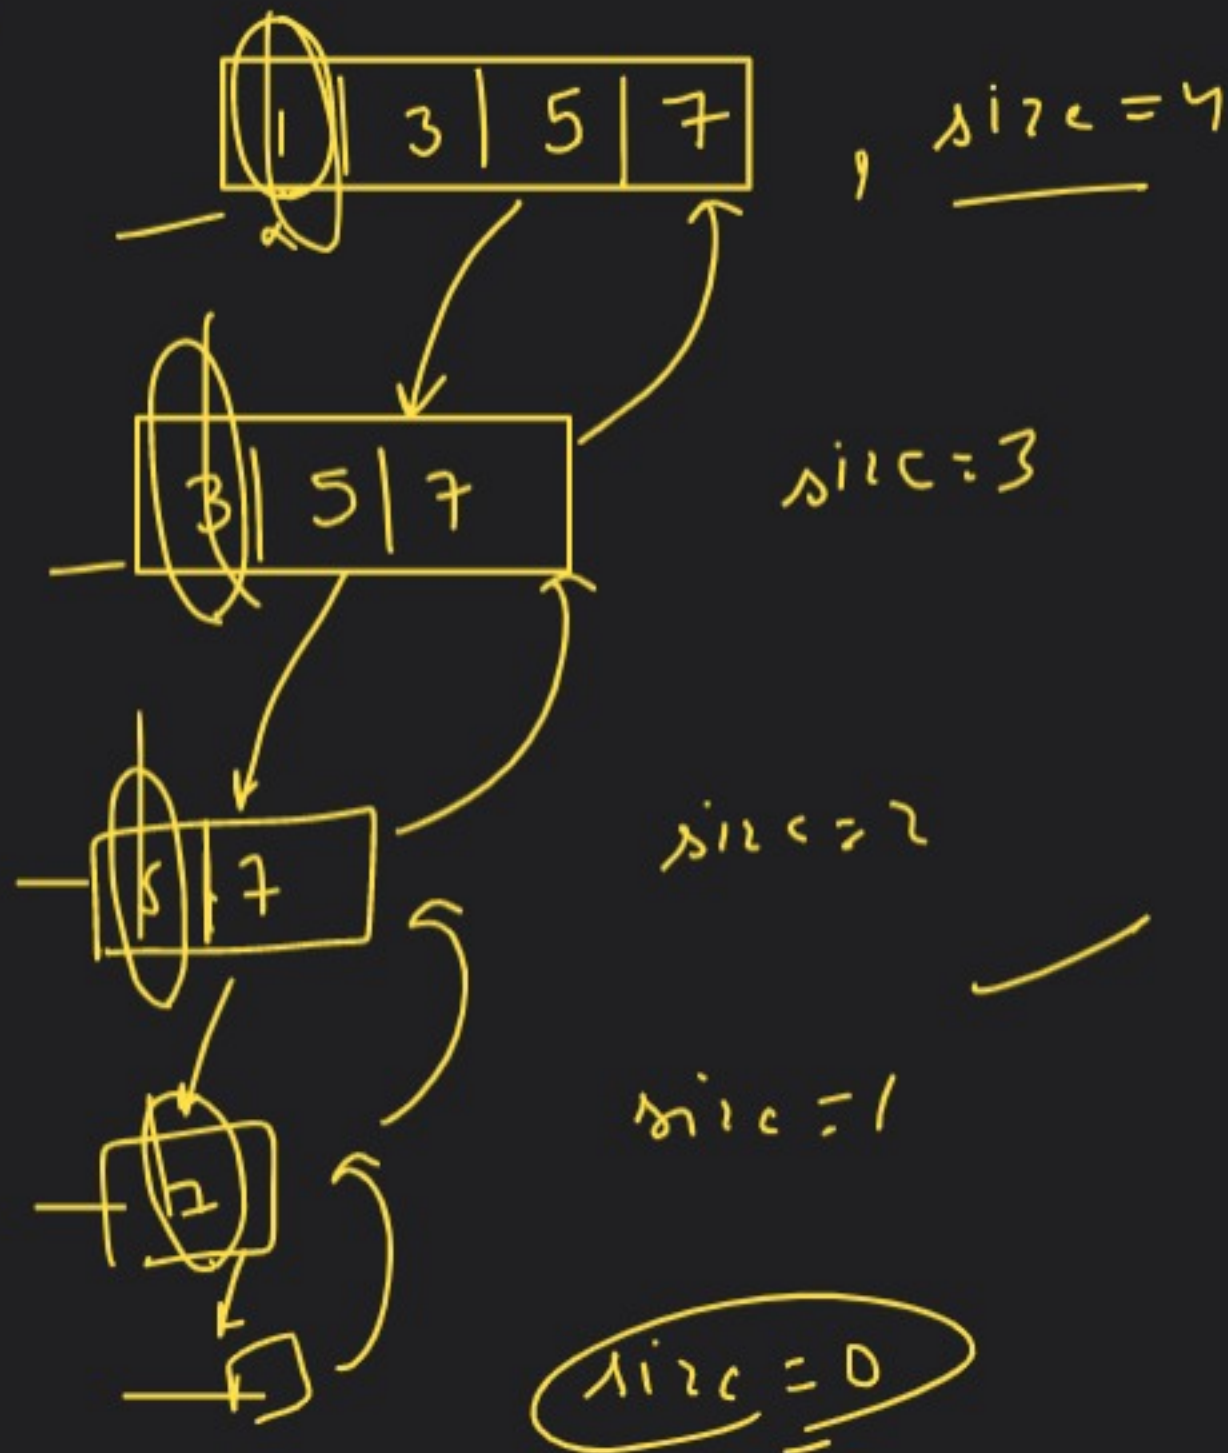 1 | 3 | 5 | 7 , size = 4
3 | 5 | 7 size = 3
5 | 7 size = 2
7 size = 1
size = 0